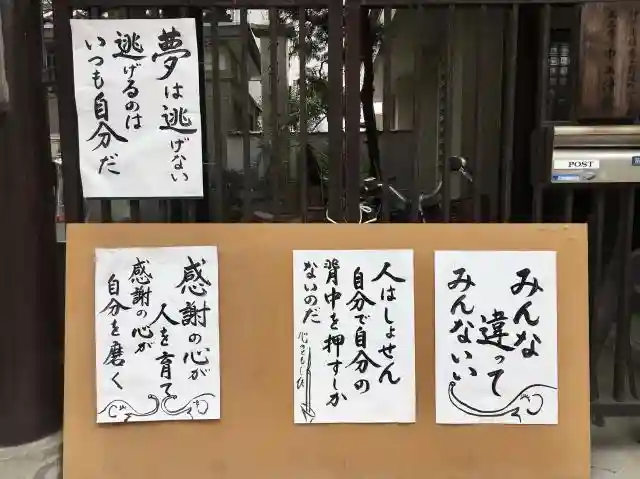 夢は逃げない
逃げるのは
いつも自分だ
POST
みんな
違って
みんないい
人はしょせん
自分で自分の
背中を押すしか
ないのだ
心のともしび
感謝の心が
人を育て
感謝の心が
自分を磨く